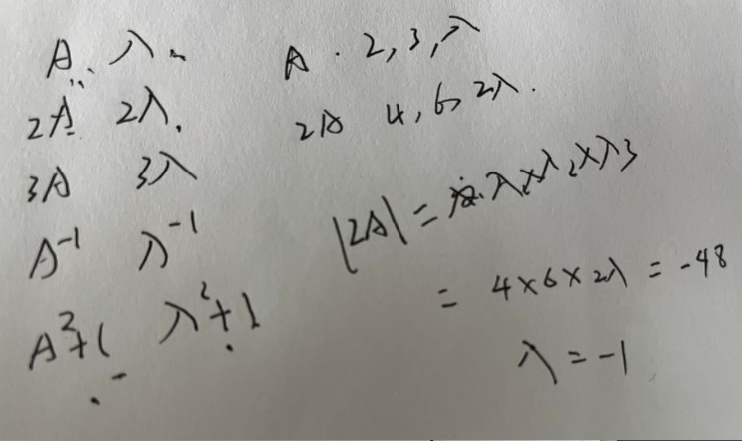 A λ
2A 2λ.
3A 3λ
A⁻¹ λ⁻¹
A²+1 λ²+1
A · 2, 3, λ
2A 4, 6, 2λ.
|2A| = λ₁×λ₂×λ3
= 4×6×2λ = -48
λ = -1